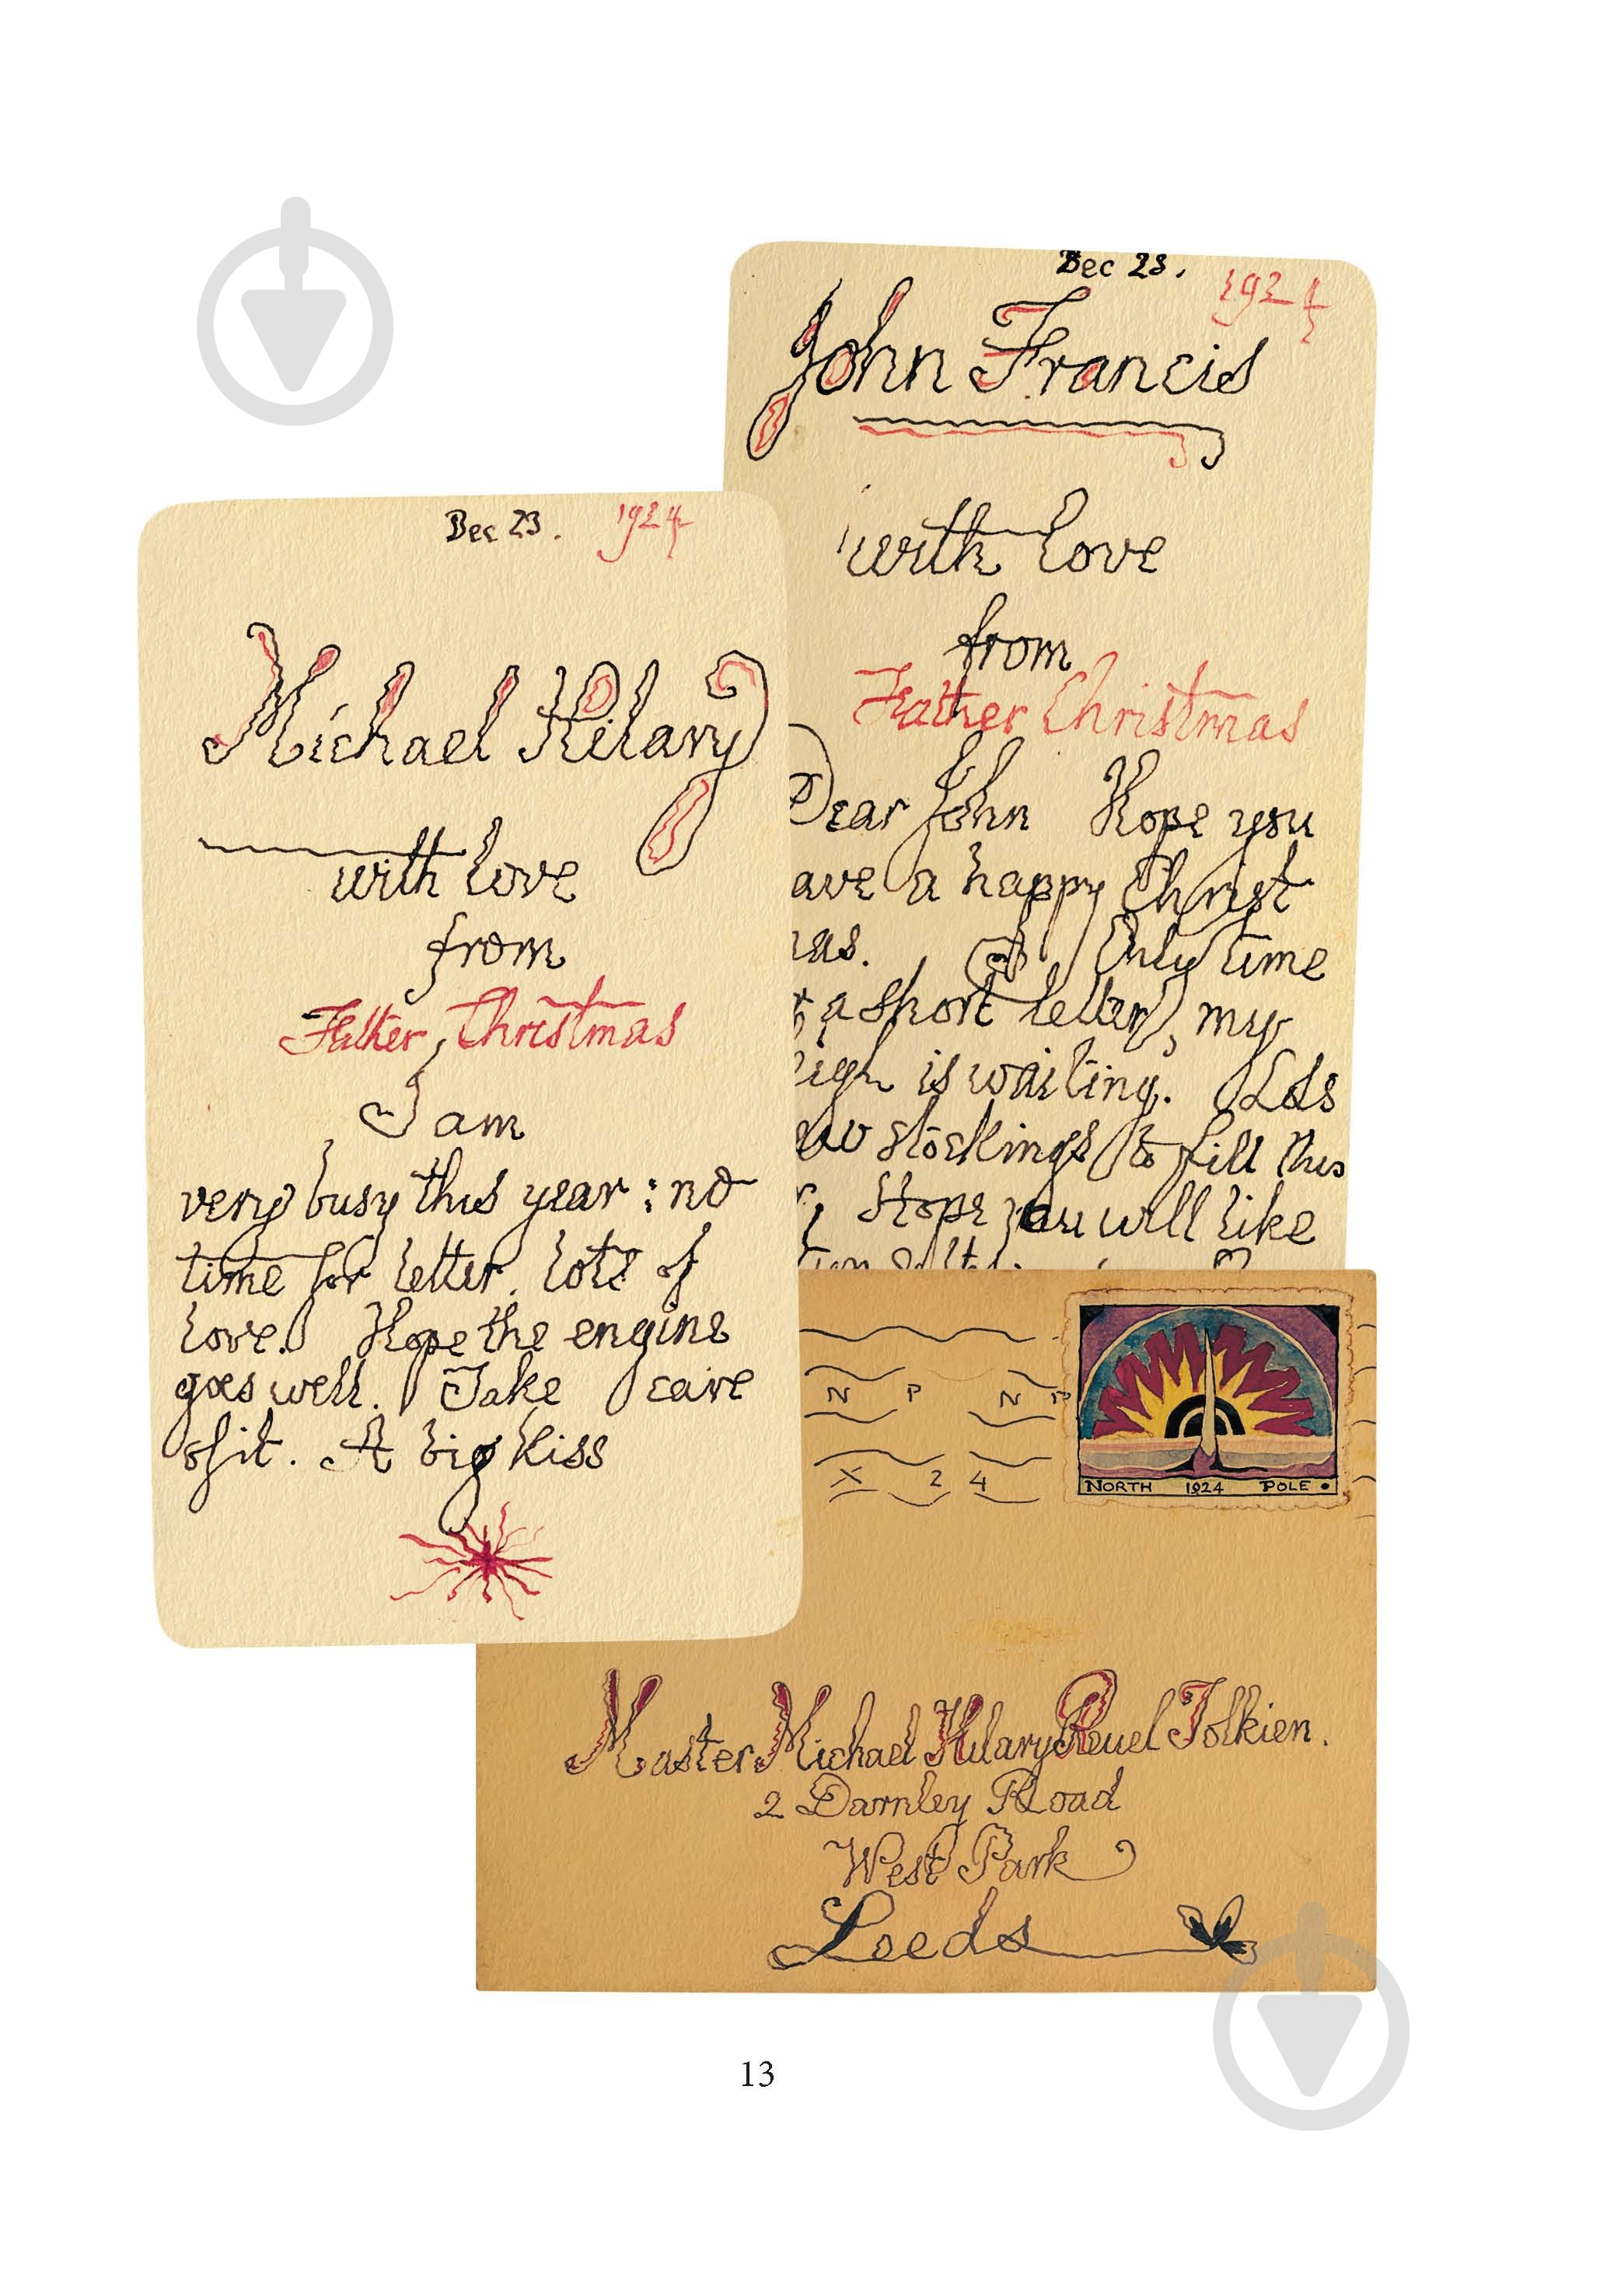 Dec 23. 1924
Michael Hilary
with love
from
Father Christmas
I am
very busy this year: no
time for letter. Lots of
love. Hope the engine
goes well. Take care
of it. A big kiss
Dec 23. 1924
John Francis
with love
from
Father Christmas
Dear John Hope you
ave a happy Christ
as. Only time
r a short letter, my
eigh is waiting. Lots
ew stockings to fill this
r. Hope you will like
N P N P
X 24
NORTH 1924 POLE
Master Michael Hilary Reuel Tolkien.
2 Darnley Road
West Park
Leeds
13